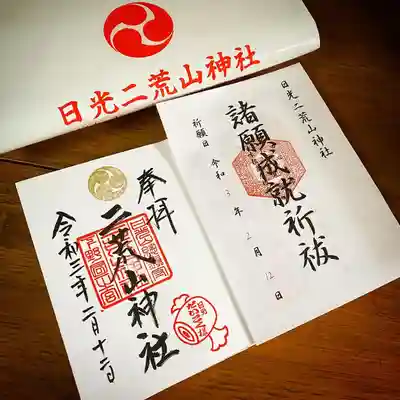 日光二荒山神社
日光二荒山神社
諸願成就祈祓
祈願日 令和3年2月12日
奉拝
二荒山神社
令和三年二月十二日